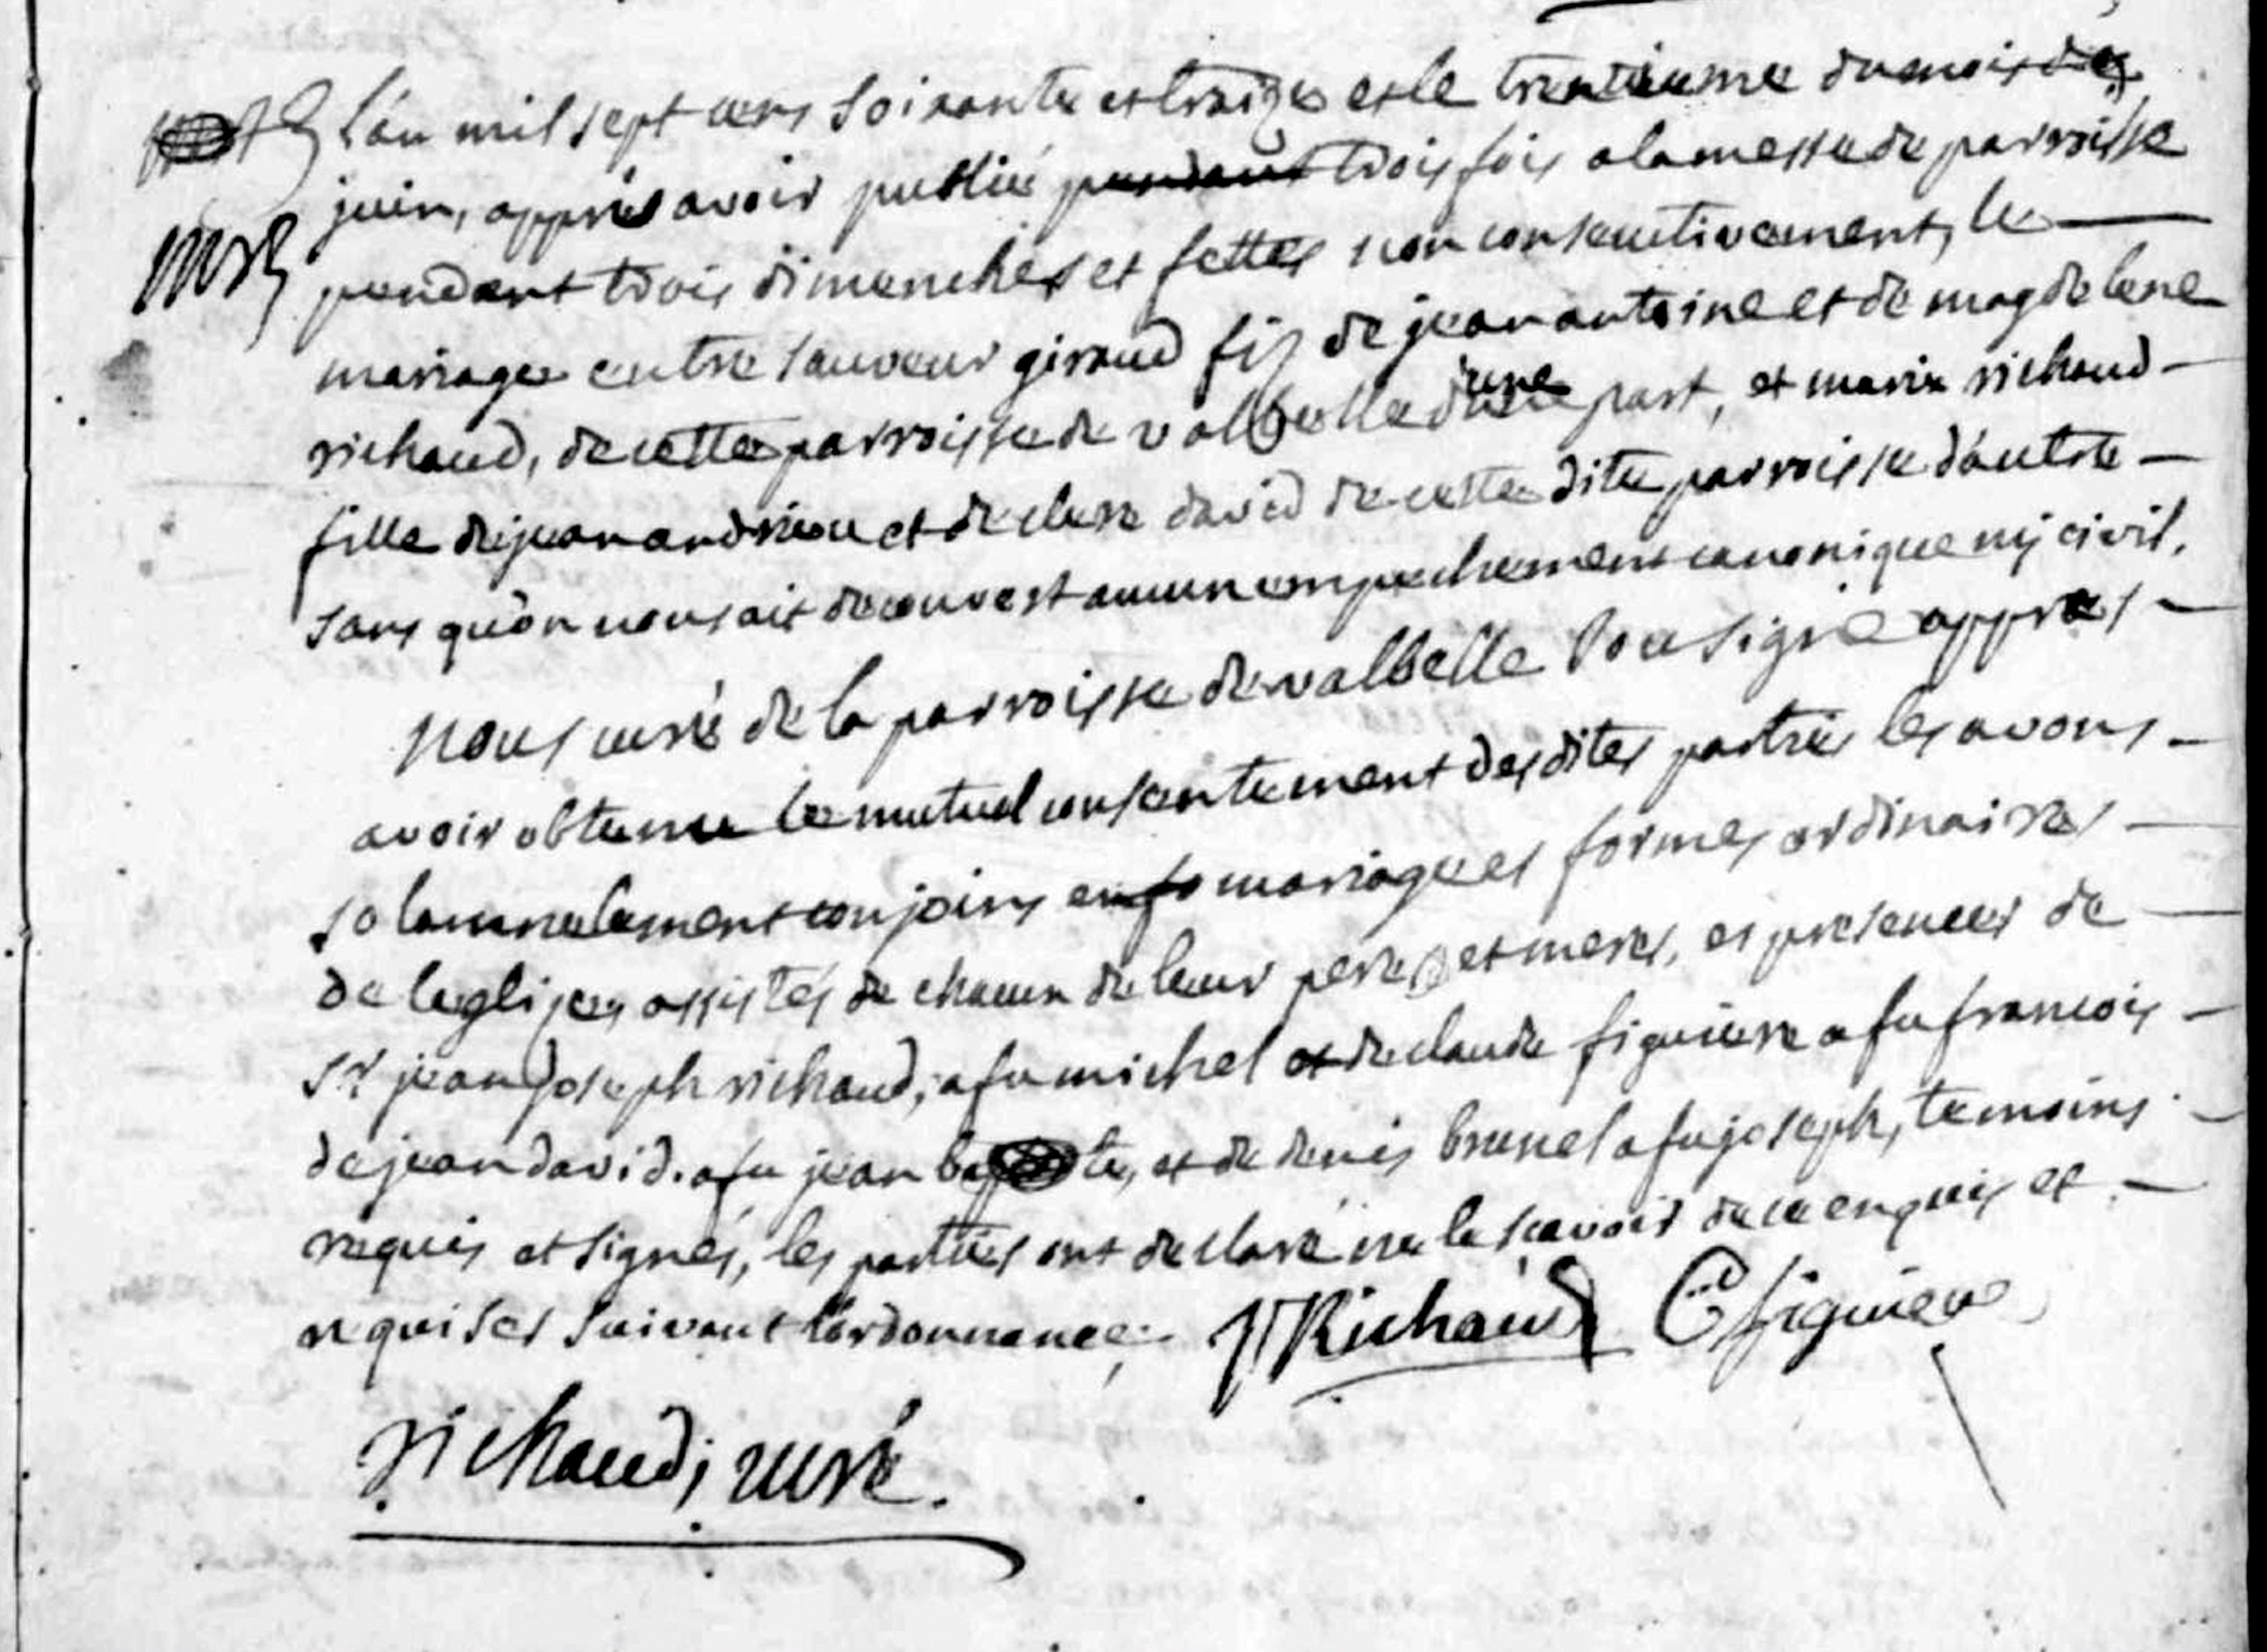 L'an mil sept cens soixante et traize et le trentieme du mois de
juin, appres avoir publié pendant trois fois a la messe de parroisse
pendant trois dimenches et fettes non consecutivement, le
mariage entre sauveur giraud fis de jean antoine et de magdelene
richaud, de cette parroisse de valbelle d'une part, et marie richaud
fille de jean andrieu et de clere david de cette dite parroisse d'autre
sans qu'on nous ait decouvert aucun empechement canonique ny civil.
Nous curé de la parroisse de valbelle sousigné appres
avoir obtenu le mutuel consentement des dites parties les avons
solamnelement conjoins en mariage es formes ordinaires
de leglise, assistés de chacun de leur peres et meres, es presences de
sr jean joseph richaud, a fu michel et de claude figuiere a fu francois
de jean david a fu jean bapte, et de denis brunel a fu joseph, temoins
requis et signés, les parties ont declaré ne le scavoir de ce enquis et
requises suivant l'ordonnance.
JJ Richaud C figuiere
richaud, curé.